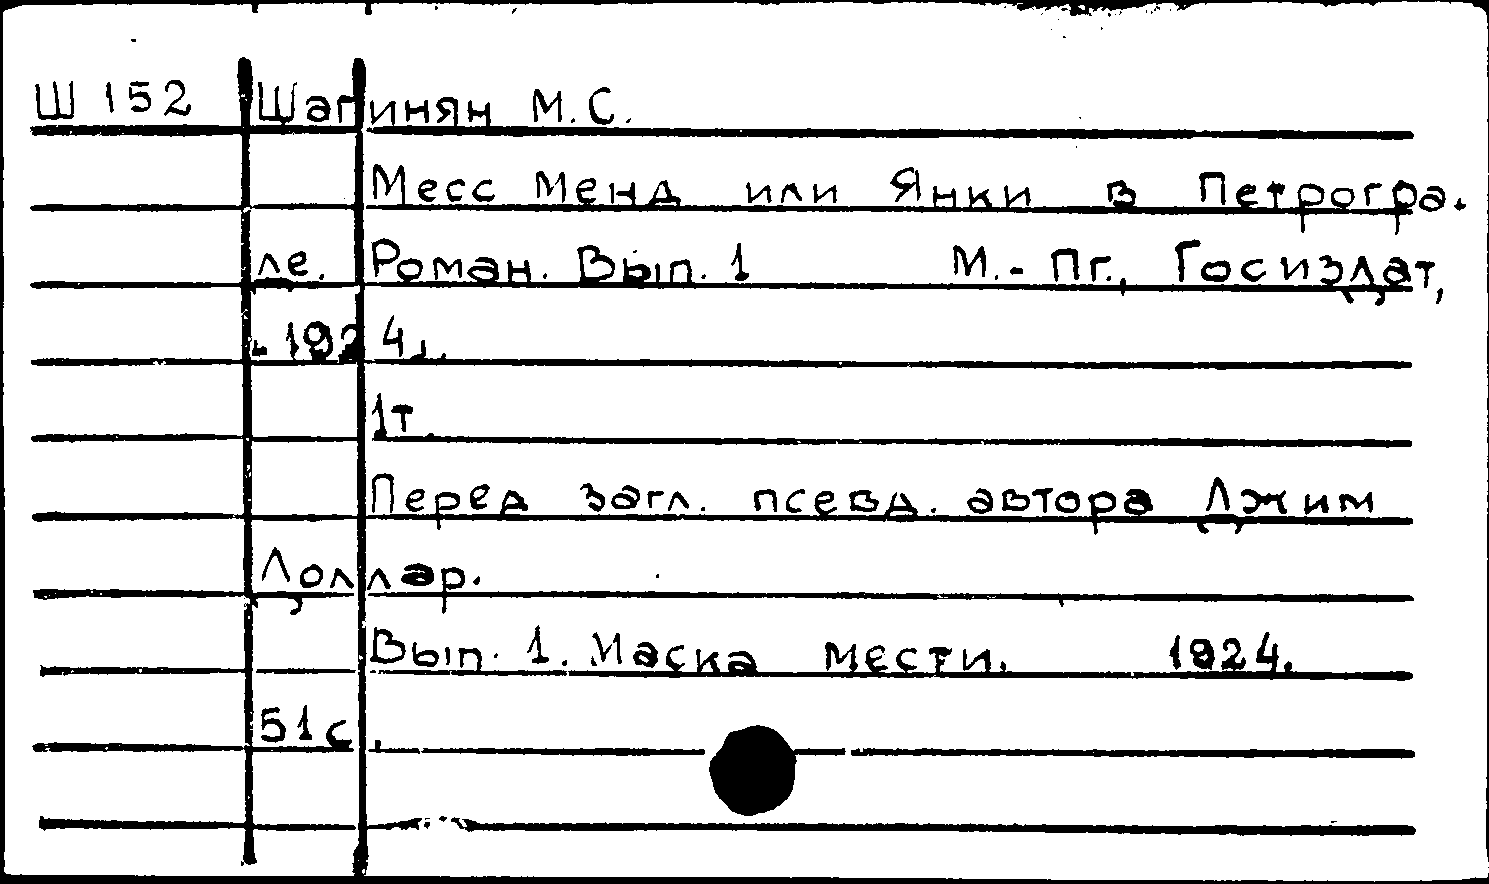 Ш 152 Шагинян М.С.
Месс Менд или Янки в Петрогра.
де. Роман. Вып. 1 М.- Пг., Госиздат,
- 1924.
1т.
Перед загл. псевд. автора Джим
Доллар.
Вып. 1. Маска мести. 1924.
51с.